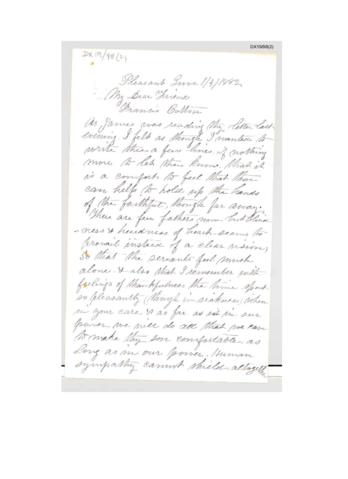 DX19/98(2)
DX 19/98(2)
Pleasant Grove 1/3/1882
My Dear Friend
Francis Cotton
As James was reading thy letter last
evening I felt as though I wanted to
write thee a few lines if nothing
more to let thee know that it
is a comfort to feel that thou
can help to hold up the hands
of the faithful, though far away.
There are few fathers now but blind
-ness & hardness of heart seems to
prevail instead of a clear vision,
so that the servants feel much
alone. & also that I remember with
feelings of thankfulness the time spent
so pleasantly though in weakness, when
in your care & as far as is in our
power, we will do all that we can
to make thy son comfortable as
long as in our power. Human
sympathy cannot shield